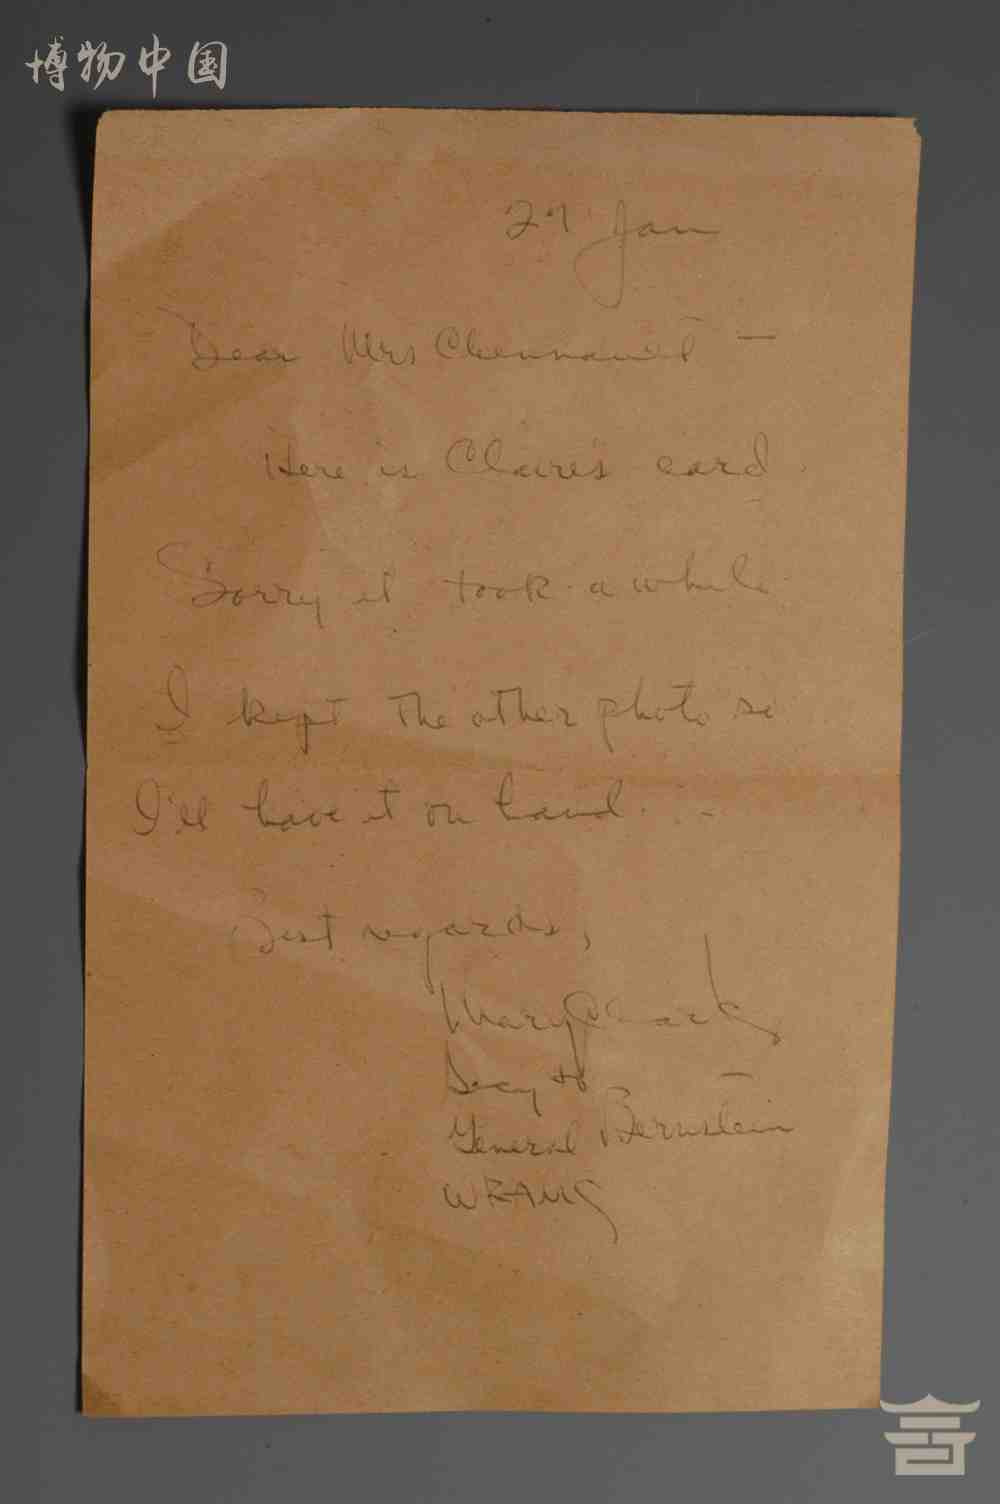 博物中国
27 Jan
Dear Mrs Chennault —
Here is Claire's card.
Sorry it took a while.
I kept the other photo so
I'll have it on hand.
Best regards,
Mary Clark
Secy to
General Bernstein
WRAMC